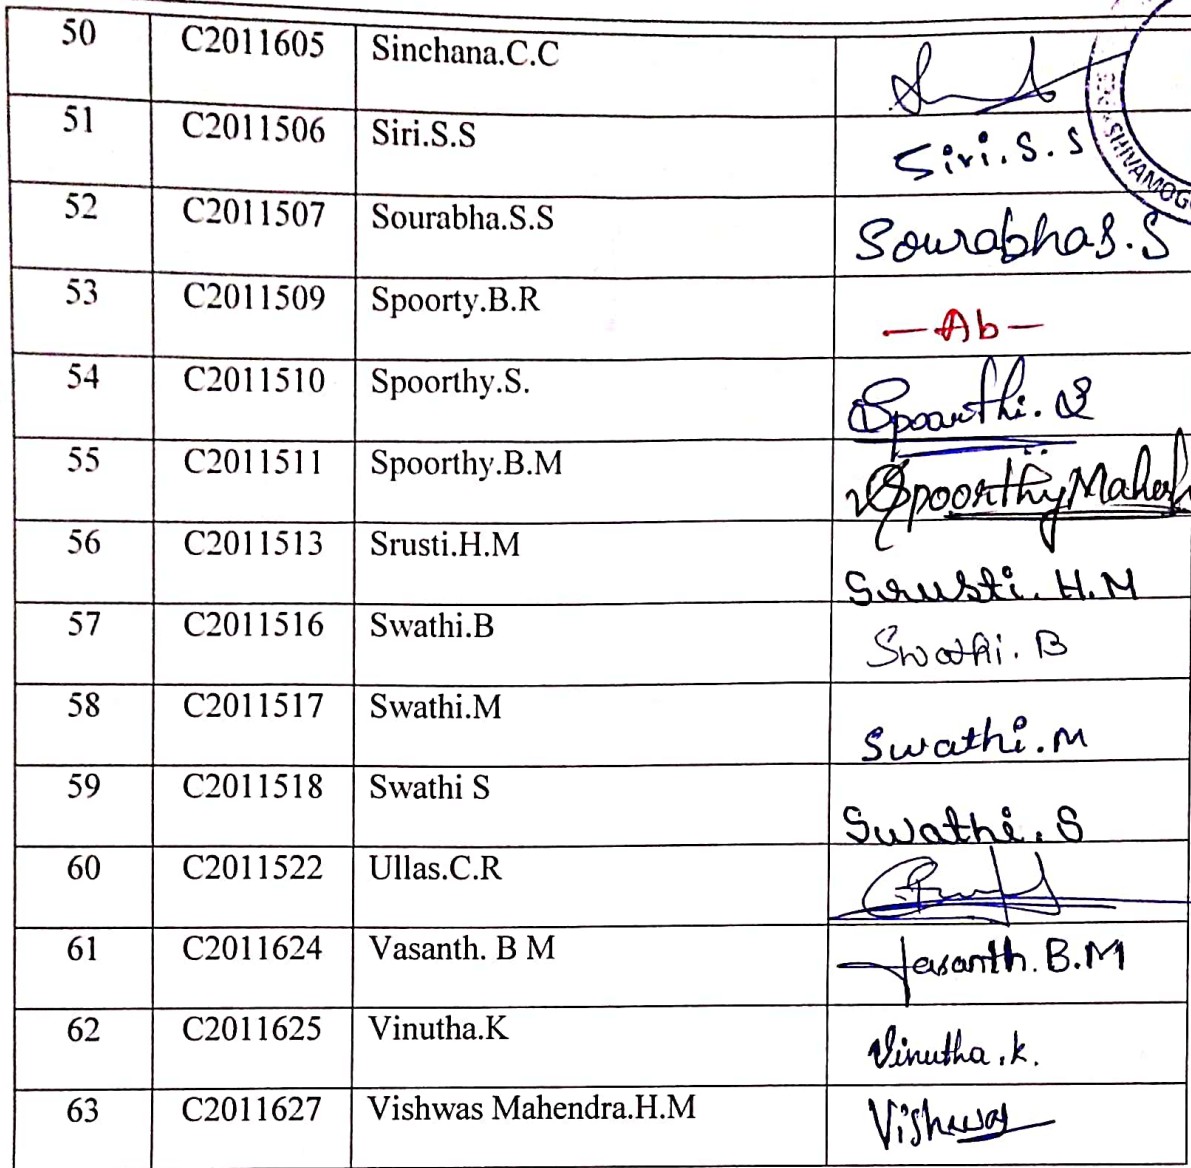 50 C2011605 Sinchana.C.C
51 C2011506 Siri.S.S Siri.S.S
SHIVAMOG
52 C2011507 Sourabha.S.S SourabhaS.S
53 C2011509 Spoorty.B.R —Ab—
54 C2011510 Spoorthy.S. Spoorthi.S
55 C2011511 Spoorthy.B.M Spoorthy Mahesh
56 C2011513 Srusti.H.M Srusti.H.M
57 C2011516 Swathi.B Swathi.B
58 C2011517 Swathi.M Swathi.M
59 C2011518 Swathi S Swathi.S
60 C2011522 Ullas.C.R
61 C2011624 Vasanth. B M Vasanth.B.M
62 C2011625 Vinutha.K Vinutha.k.
63 C2011627 Vishwas Mahendra.H.M Vishwas